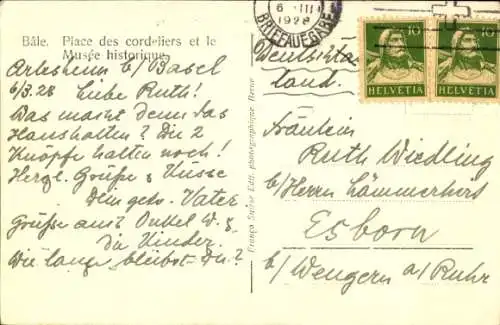 Bâle. Place des cordeliers et le
Musée historique.
Arlesheim b/Basel
6/3.28 Liebe Ruth!
Was macht denn das
Haushalten? Die 2
Knöpfe halten noch!
Herzl. Grüße & Küsse
Dein getr. Vater
Grüße auch Onkel W. &
die Kinder.
Wie lange bleibst Du?
6 III
1928
BRIEFAUFGABE
10
HELVETIA
10
HELVETIA
Deutschland.
Fräulein
Ruth Wiedling
b/Herrn Lämmerhirt
Esborn
b/ Wengern a/Ruhr
Franco Suisse Edit. photographique Berne